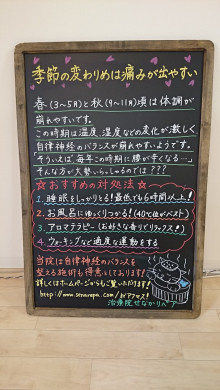 季節の変わりめは痛みが出やすい
春(3〜5月)と秋(9〜11月)頃は体調が
崩れやすいです。
この時期は温度、湿度などの変化が激しく
自律神経のバランスが崩れやすいようです。
「そういえば、毎年この時期に腰が辛くなる…」
そんな方が大勢いらっしゃるのでは???
☆おすすめの対処法☆
1.睡眠をしっかりとる!最低でも6時間以上!
2.お風呂にゆっくりつかる!(40℃位がベスト)
3.アロマテラピー(お好きな香りでリラックス!)
4.ウォーキングなど適度な運動をする
当院は自律神経のバランスを
整える施術も得意としております!
詳しくはホームページからもご覧いただけます!
治療院せなかりん